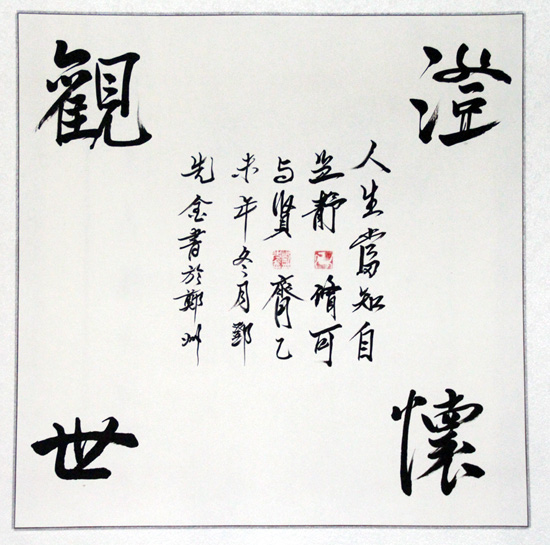 澄懷
觀世
人生當知自
足静脩可
与賢齊乙
未年冬月鄧
先金書於鄭州